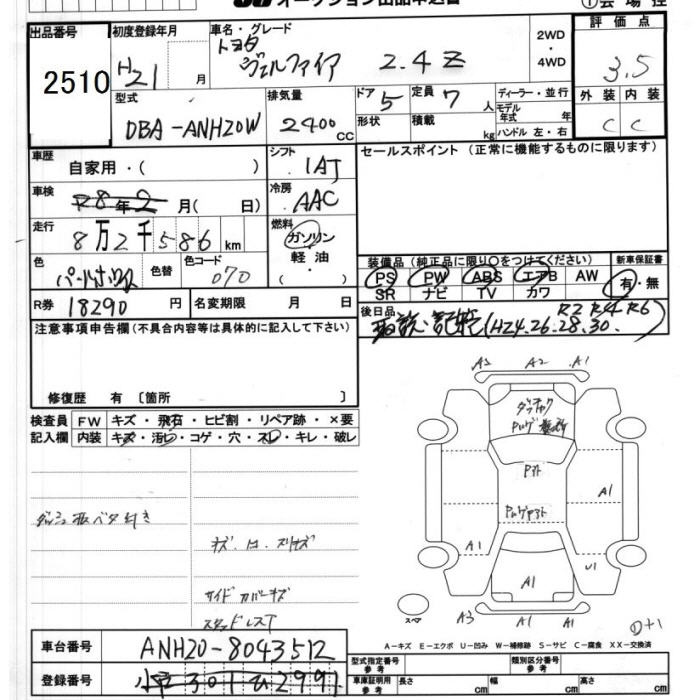 オークション出品申込書
出品番号 2510
初度登録年月 H21 月
車名・グレード トヨタ ヴェルファイア 2.4Z
2WD・4WD
評価点 3.5
型式 DBA-ANH20W
排気量 2400 cc
ドア 5
形状
定員 7 人
積載 kg
ディーラー・並行
モデル年式 年
ハンドル 左・右
外装 C 内装 C
車歴 自家用・( )
シフト IAT
セールスポイント (正常に機能するものに限ります)
車検 R8年2月( 日)
冷房 AAC
走行 8万2千586 km
燃料 ガソリン・軽油・( )
色 パールホワイト 色替 色コード 070
装備品 (純正品に限り○をつけてください) 新車保証書
PS PW ABS エアB AW 有・無
SR ナビ TV カワ
R券 18290円 名変期限 月 日
後日品 取説、記録(H24.26.28.30. R2 R4 R6)
注意事項申告欄(不具合内容等は具体的に記入して下さい)
修復歴 有 〔箇所 〕
検査員記入欄
FW キズ・飛石・ヒビ割・リペア跡・×要
内装 キズ・汚レ・コゲ・穴・スレ・キレ・破レ
ダッシュ板ベタ付き
サイドカバーキズ
スタッドレス
A3 A2 A1
A1
A1 U1
A1
A3 A1 A1
スペア
A-キズ E-エクボ U-凹み W-補修跡 S-サビ C-腐食 XX-交換済
車台番号 ANH20-8043512
登録番号
型式指定番号 参考 類別区分番号 参考
車庫証明用 参考 長さ cm 幅 cm 高さ cm